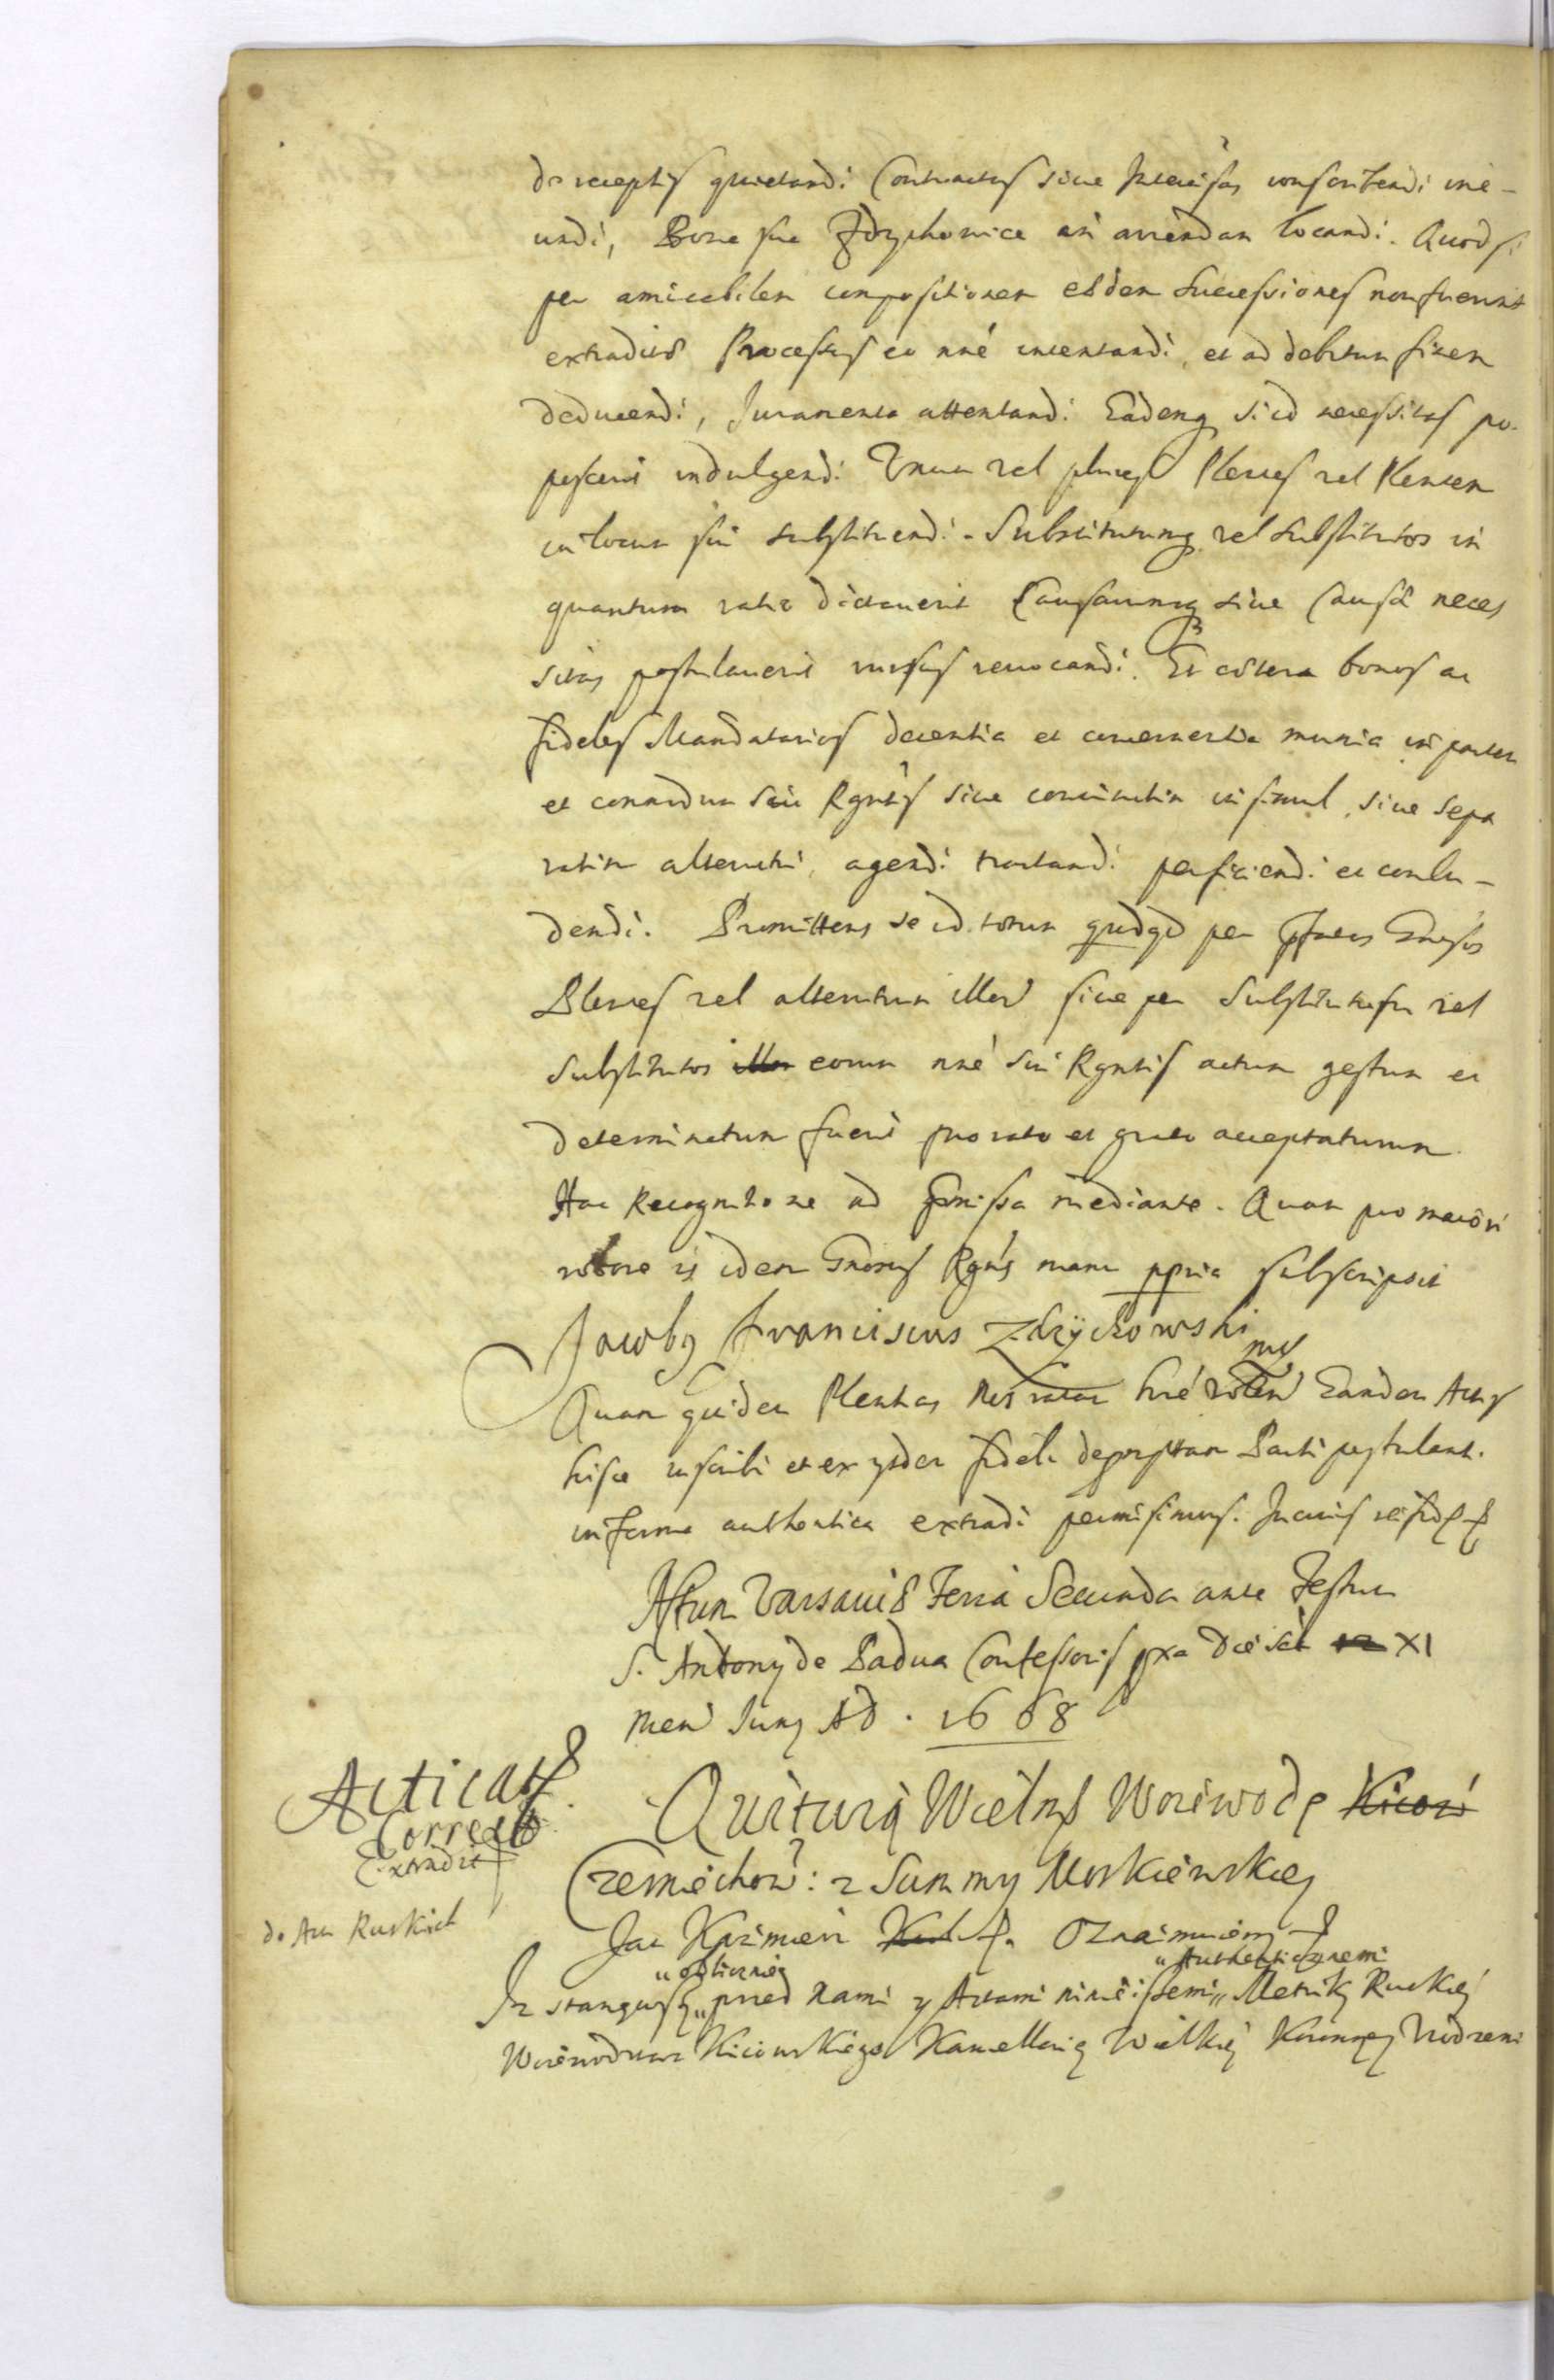 de receptis quietandi. Contractus siue Intercisas conscribendi ine-
undi, Bona sua Zdzychowice in arrendam locandi. Quod si
per amicabilem compositionem eædem successiones non fuerint
extraditæ Processus eo nně intentandi, et ad debitum finem
deducendi, Juramenta attentandi. Eademq si id necessitas po-
poscerit indulgendi. Vnum vel plures Plenes vel Plenten
in locum sui substituendi. Substitutumq vel substitutos in
quantum ratio dictauerit Causarumq siue Causæ neces
sitas postulauerit rursus reuocandi. Et cætera bonos ac
fideles Mandatarios decentia et concernentia munia in partem
et commodum sui Rgntis siue coniunctim in simul, siue sepa
ratim alterutri, agendi tractandi perficiendi et conclu-
dendi. Promittens se id totum quidqd per pfatos Gnesos
Plenes vel alterutrum illor siue per Substitutum vel
substitutos eorum nně sui Rgntis actum gestum et
determinatum fuerit pro rato et grato accepturum.
Hac Recognitione ad pmissa mediante. Quam pro maiori
robore is idem Gnosus Rgns manu ppria subscripsit
Jacobg Franciscus Zdzÿchowski mp
Quam quidem Plentias Eandem Actis
hisce inscribi et ex ijsdem fideli depromptam Parti postulant.
in forma authentica extradi permisimus. In cuius rei fid
Actum Varsauiæ Feria Secunda ante Festum
S. Antony de Padua Confessoris pxa Die sct XI
Men Juny AD. 1668
Acticat
Correct
Extradit
do Act Ruskich
Quituią Wielmo Woiewodę Kiiow
Czerniechow: z Summy Moskiewskiey
Jan Kazimierz Oznaimuiemy
"obliczniey "Authenticznemi
Iz stanąwszy "przed Nami y Actami ninieiszemi" Metriky Ruskiey
Woiewodztwa Kiiowskiego Kancellariey Wielkiey Koronney Vrodzeni